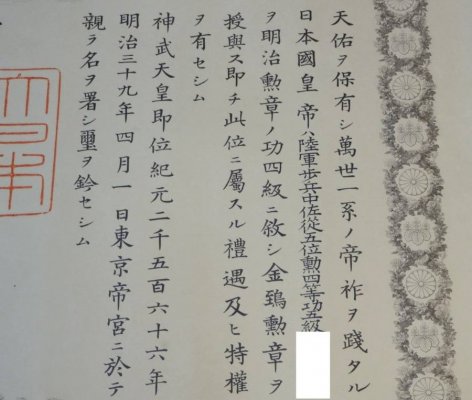 天佑ヲ保有シ萬世一系ノ帝祚ヲ踐タル
日本國皇帝ハ陸軍歩兵中佐從五位勲四等功五級
ヲ明治勲章ノ功四級ニ敘シ金鵄勲章ヲ
授與ス即チ此位ニ屬スル禮遇及ヒ特權
ヲ有セシム
神武天皇即位紀元二千五百六十六年
明治三十九年四月一日東京帝宮ニ於テ
親ラ名ヲ署シ璽ヲ鈐セシム
大日本